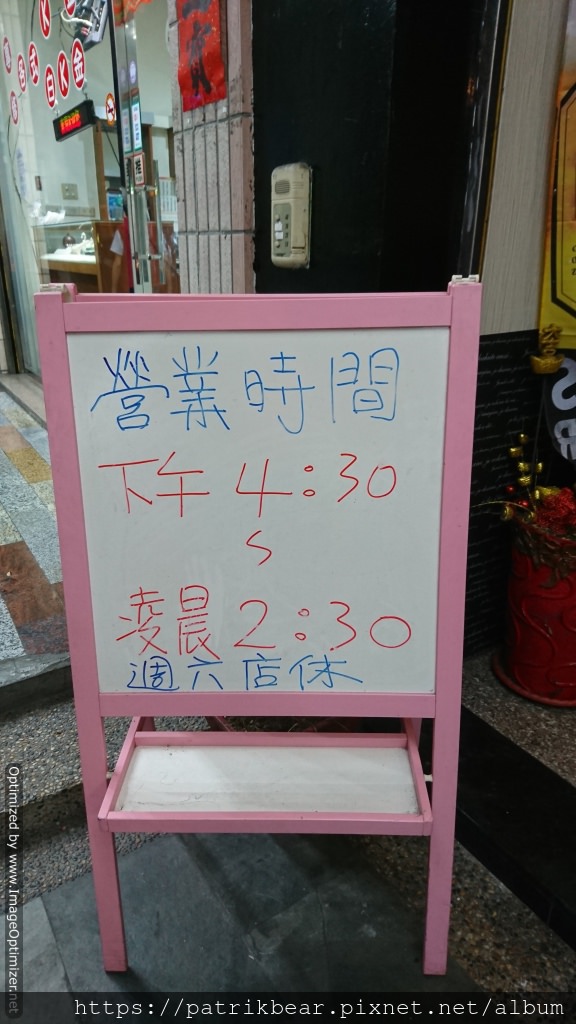 營業時間
下午 4:30
S
凌晨 2:30
週六店休
Optimized by www.ImageOptimizer.net
https://patrikbear.pixnet.net/album